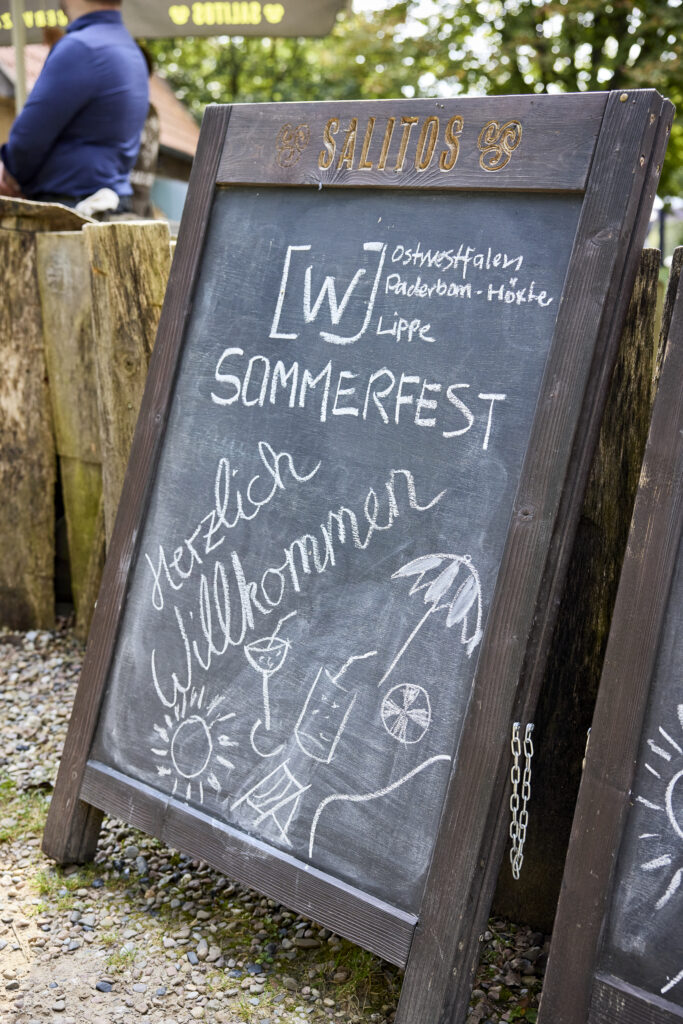 SALITOS
SALITOS
[W] Ostwestfalen
Paderborn - Höxte
Lippe
SOMMERFEST
Herzlich
Willkommen